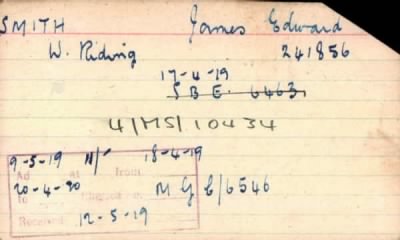 SMITH James Edward
W. Riding 241856
17-4-19
S B E. 6463
4/MS/10434
9-5-19 N/ 18-4-19
Ad at from
20-4-20 M G C/6546
to
Received 12-5-19